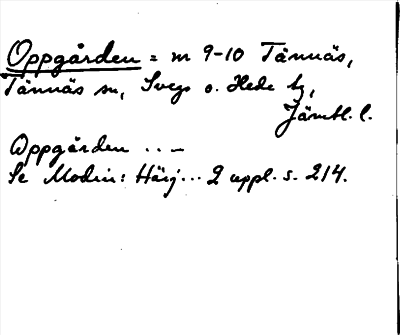 Oppgården = m 9-10 Tännäs,
Tännäs sn, Svegs o. Hede tg,
Jämtl. l.
Oppgården .. –
Se Modin: Härj... 2 uppl. s. 214.